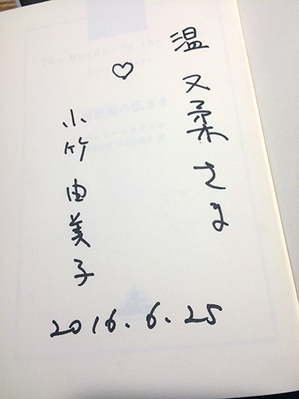 温又柔さま
♡
小竹由美子
2016.6.25